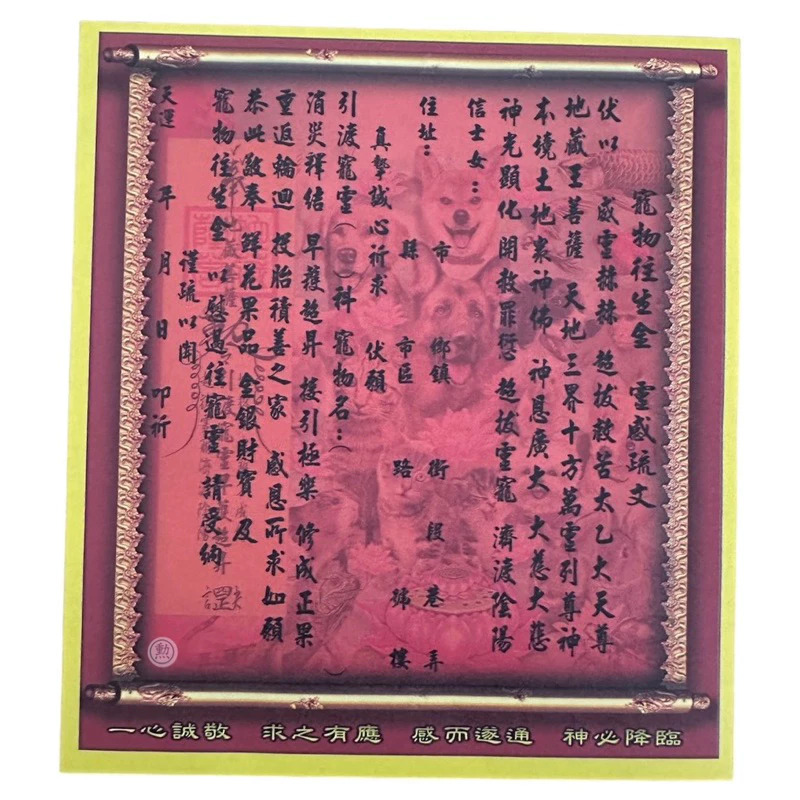 寵物往生金　靈感疏文
伏以　威靈赫赫　超拔救苦太乙大天尊
地藏王菩薩　天地三界十方萬靈列尊神
本境土地眾神佛　神恩廣大　大慈大悲
神光顯化　開赦罪愆　超拔靈寵　濟渡陰陽
信士女：
市　鄉鎮　街　段　巷　弄
住址：
縣　市區　路　號　樓
真摯誠心祈求　伏願
引渡寵靈（　）科　寵物名：（　）
消災釋結　早獲超昇　接引極樂　修成正果
重返輪迴　投胎積善之家　感恩所求如願
恭此敬奉　鮮花果品　金銀財寶　及
寵物往生金　以慰過往寵靈　請受納
謹疏以聞
天運　年　月　日　叩祈
勲
一心誠敬　求之有應　感而遂通　神必降臨